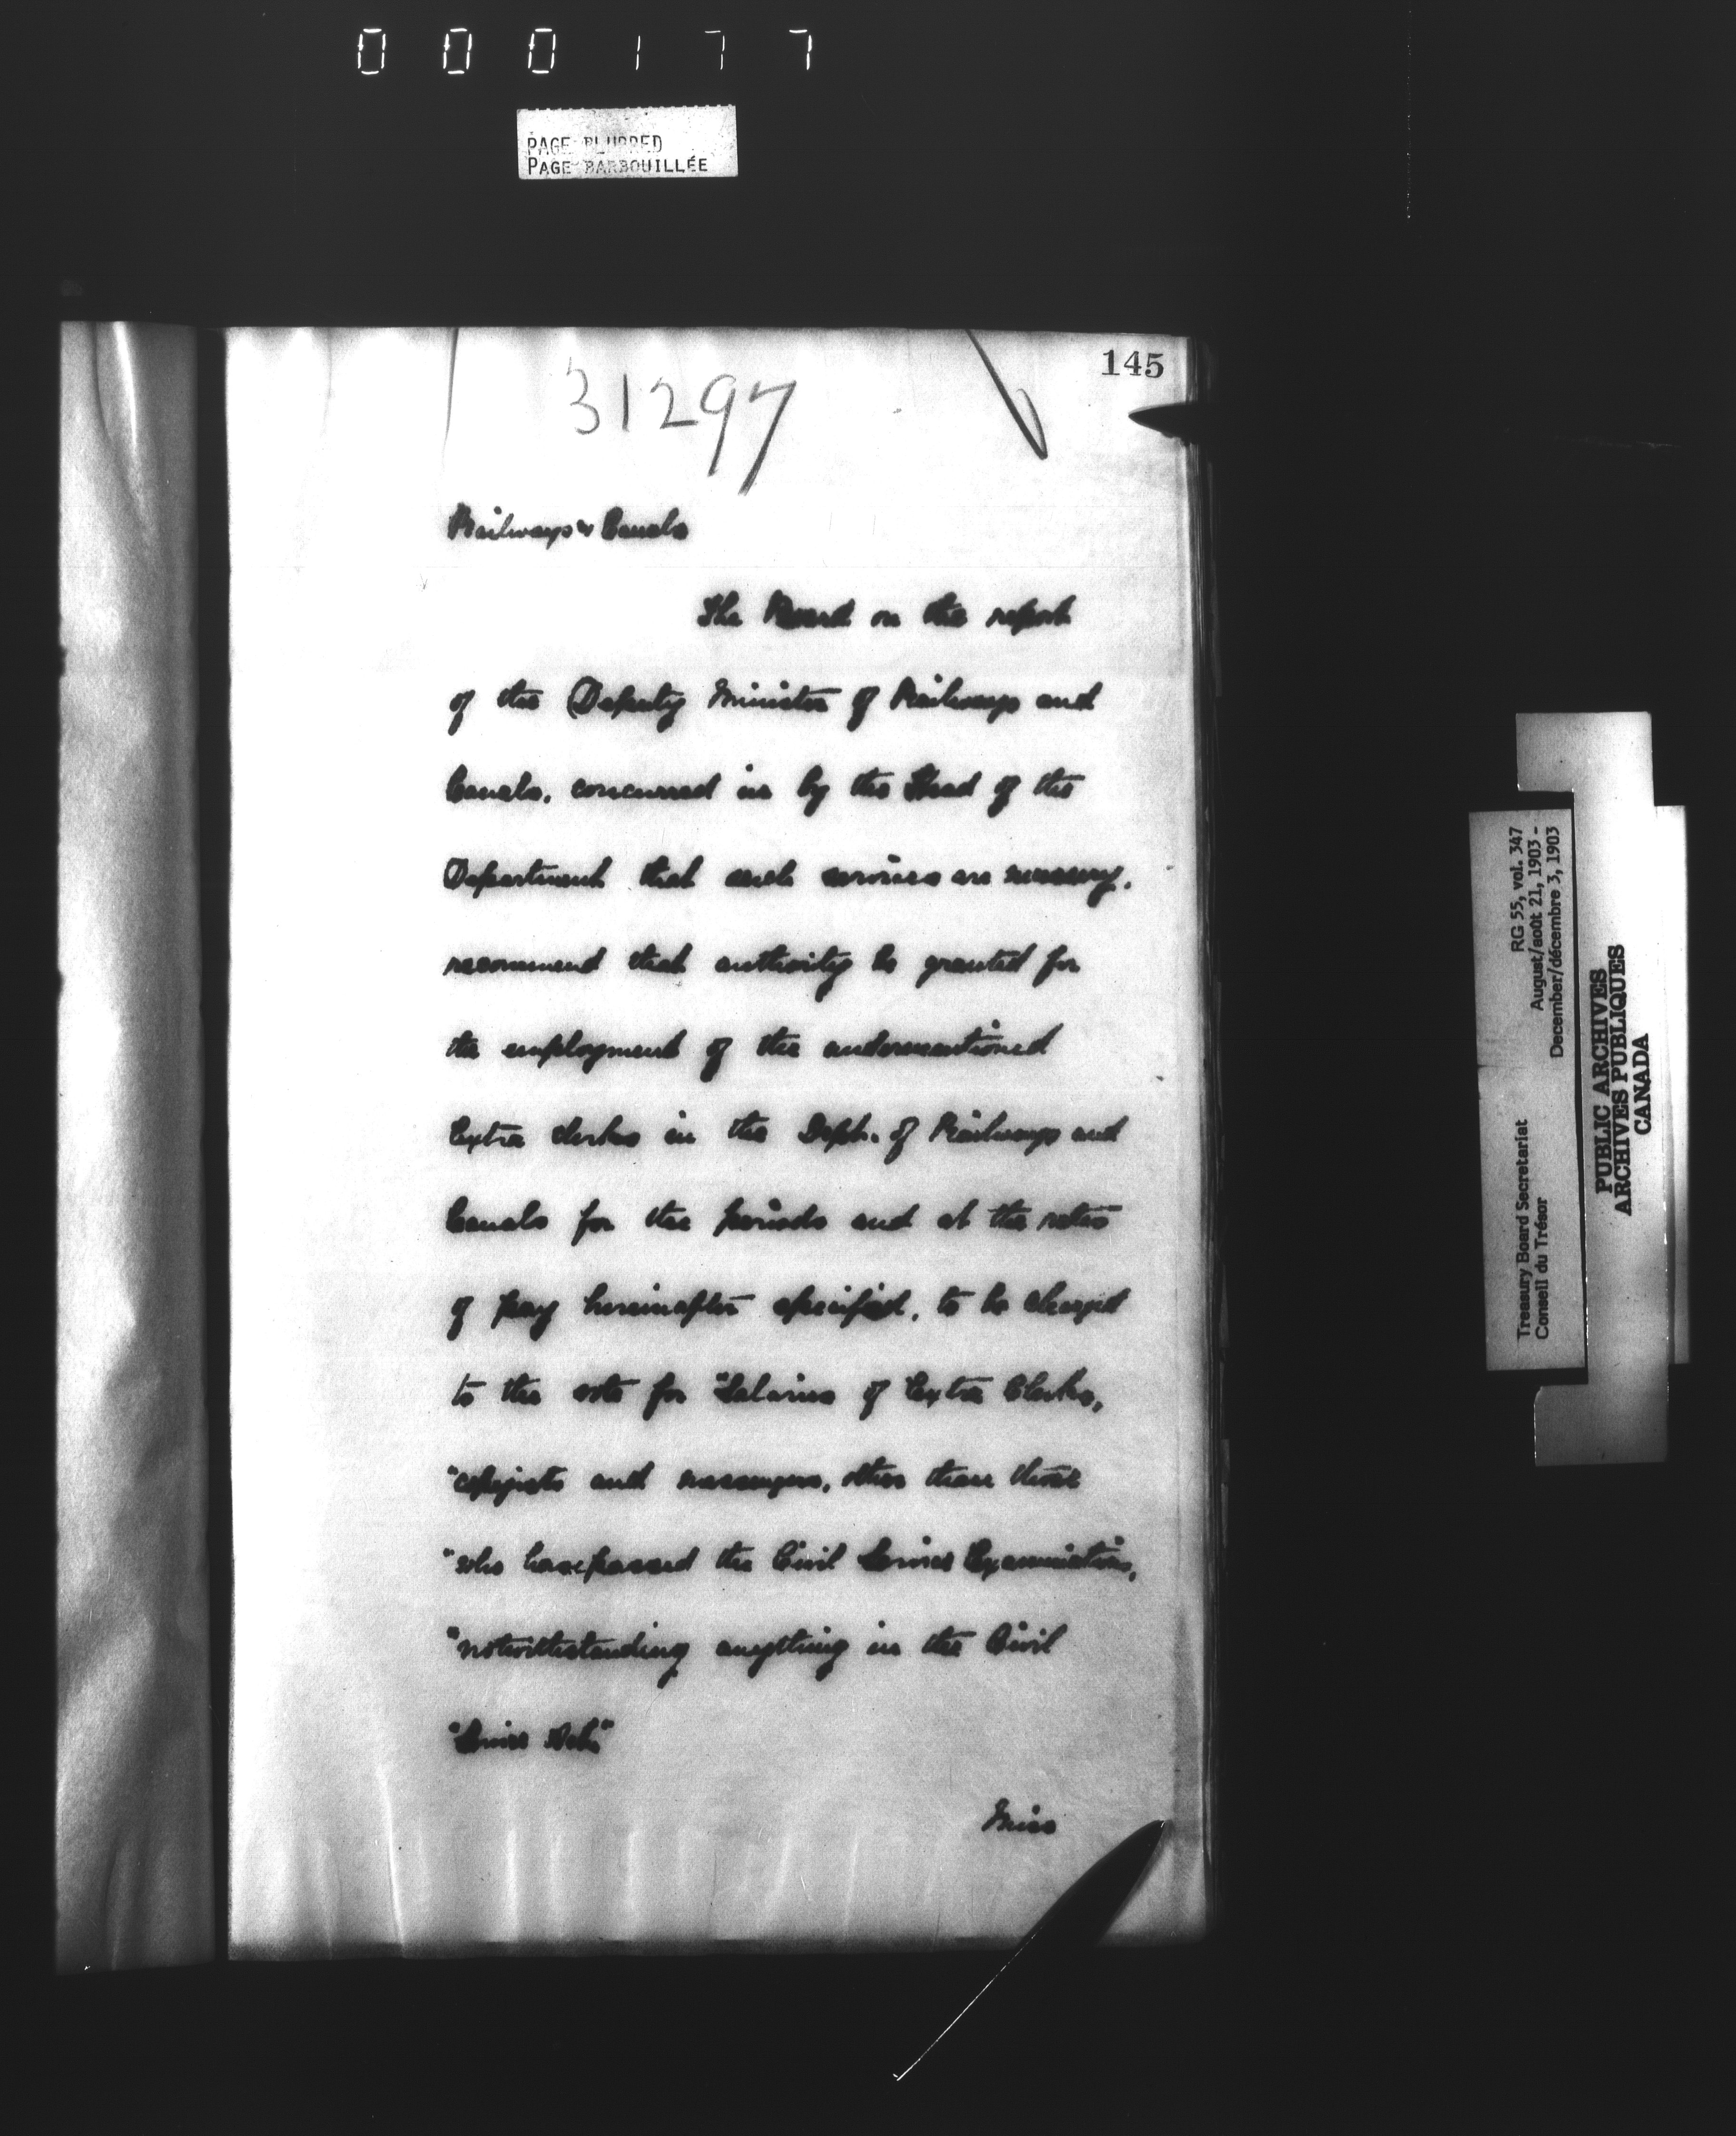 000177
PAGE BLURRED
PAGE BARBOUILLÉE
145
31297
Railways & Canals
The Board on the report
of the Deputy Minister of Railways and
Canals, concurred in by the Head of the
Department that such services are necessary,
recommend that authority be granted for
the employment of the undermentioned
Extra clerks in the Dept. of Railways and
Canals for the periods and at the rates
of pay hereinafter specified, to be charged
to the vote for "Salaries of Extra Clerks,
"copyists and messengers, other than those
"who have passed the Civil Service Examination,
"notwithstanding anything in the Civil
"Service Act."
Miss
RG 55, vol. 347
August/août 21, 1903 -
December/décembre 3, 1903
Treasury Board Secretariat
Conseil du Trésor
PUBLIC ARCHIVES
ARCHIVES PUBLIQUES
CANADA